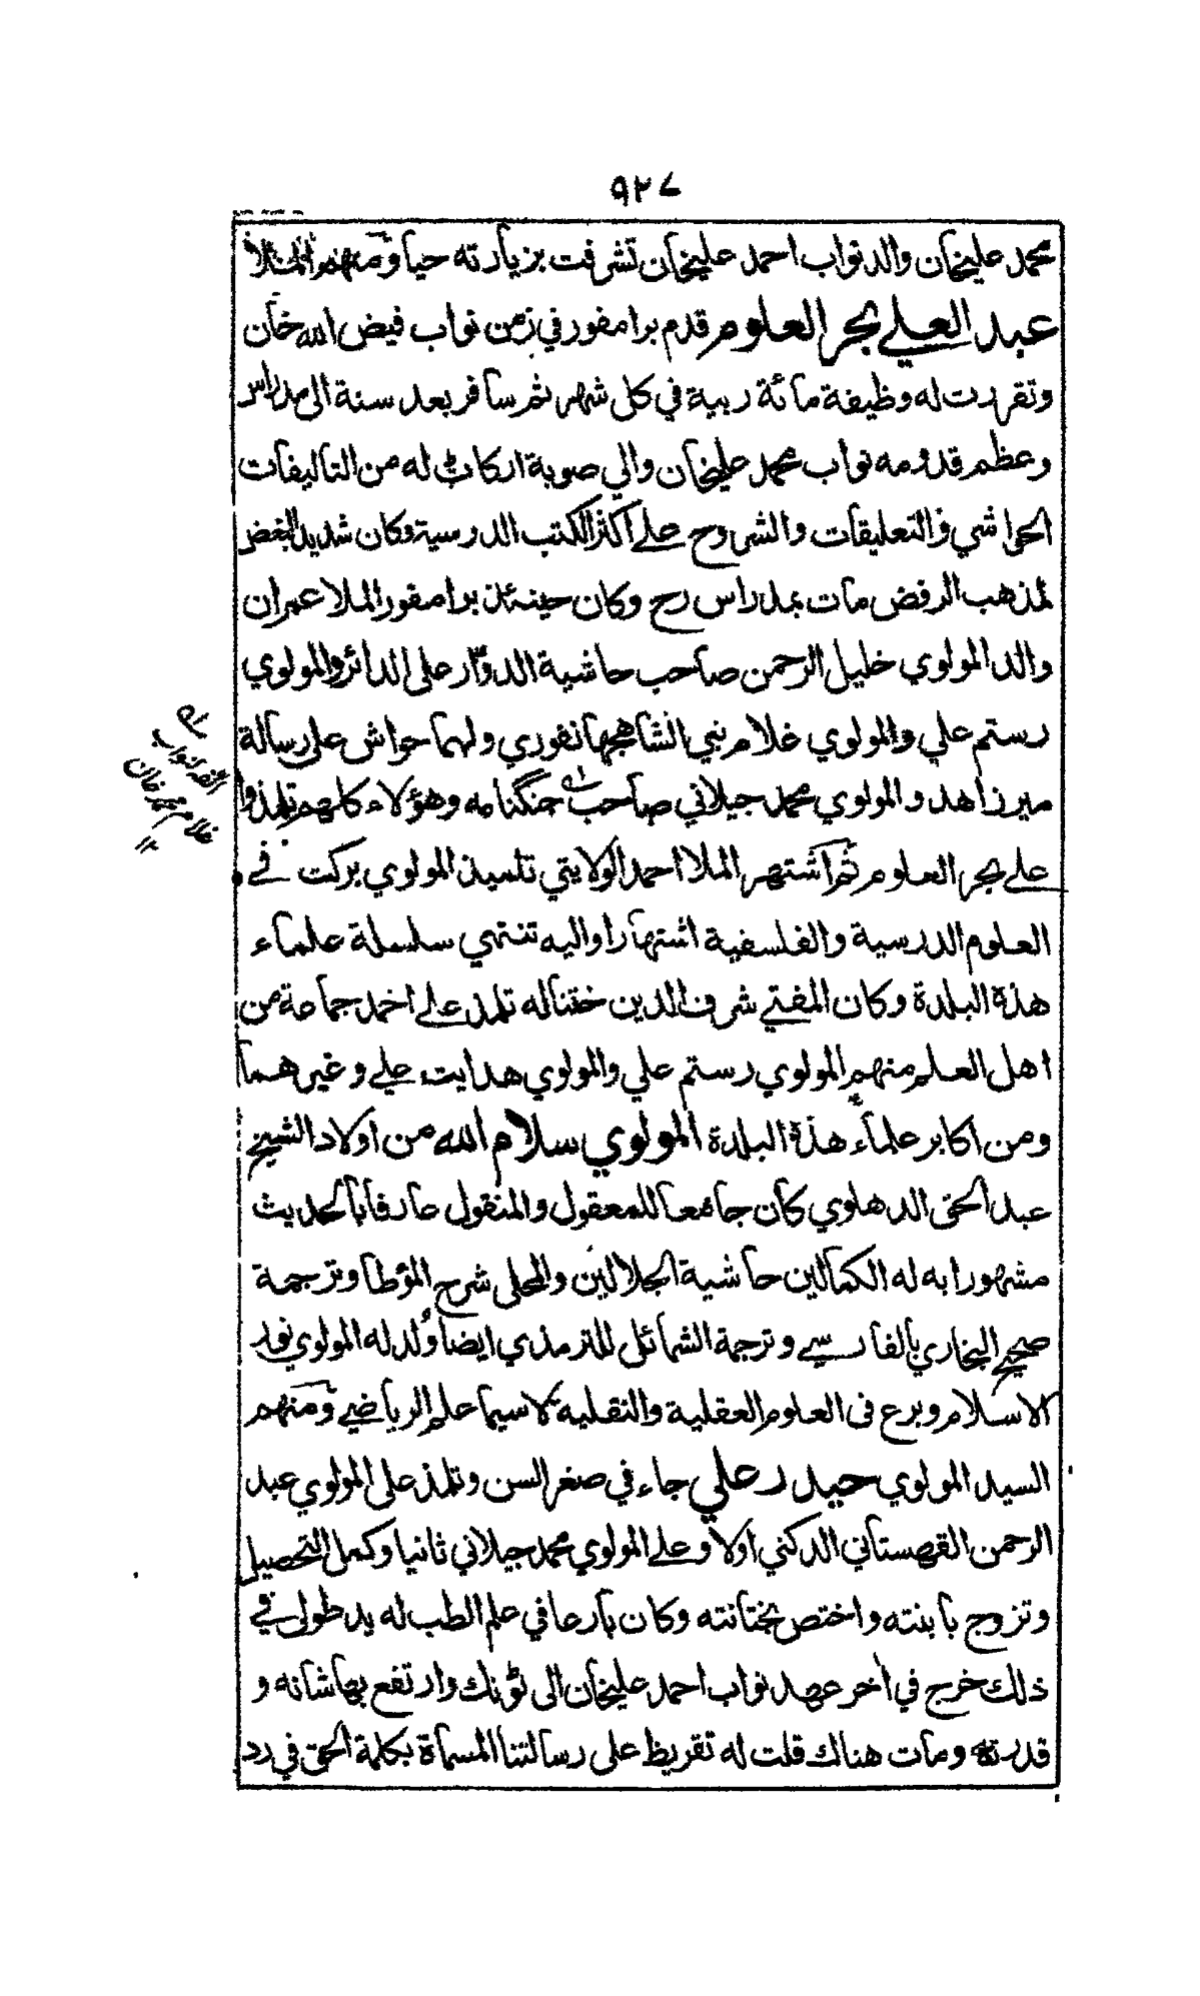 ٩٢٧
محمد عليخان والد نواب احمد عليخان تشرفت بزيارته حيا ومنهم الملا
عبد العلي بحر العلوم قدم برامفور في زمن نواب فيض الله خان
وتقررت له وظيفة مائة ربية في كل شهر ثم سافر بعد سنة الى مدراس
وعظم قدومه نواب محمد عليخان والي صوبة اركاٹ له من التاليفات
الحواشي والتعليقات والشروح على اكثر الكتب الدرسية وكان شديد البغض
لمذهب الرفض مات بمدراس رح وكان حينئذ برامفور الملا عمران
والد المولوي خليل الرحمن صاحب حاشية الدوّار على الدائر والمولوي
رستم علي والمولوي غلام نبي الشاهجهانفوري ولهما حواش على رسالة
ميرزاهد والمولوي محمد جيلاني صاحب جنگنامه وهؤلاء كلهم تلمذوا
على بحر العلوم ثم اشتهر الملا احمد الولايتي تلميذ المولوي بركت في
العلوم الدرسية والفلسفية اشتهارا واليه تنتهي سلسلة علماء
هذه البلدة وكان المفتي شرف الدين ختنا له تلمذ على احمد جماعة من
اهل العلم منهم المولوي رستم علي والمولوي هدايت علي وغيرهما
ومن اكابر علماء هذه البلدة المولوي سلام الله من اولاد الشيخ
عبد الحق الدهلوي كان جامعا للمعقول والمنقول عارفا بالحديث
مشهورا به له الكمالين حاشية الجلالين والمحلى شرح المؤطا وترجمة
صحيح البخاري بالفارسي وترجمة الشمائل للترمذي ايضا وُلد له المولوي نور
الاسلام وبرع في العلوم العقلية والنقليه لاسيما علم الرياضي ومنهم
السيد المولوي حيدر علي جاء في صغر السن وتلمذ على المولوي عبد
الرحمن القهستاني الدكني اولا وعلى المولوي محمد جيلاني ثانيا وكمل التحصيل
وتزوج بابنته واختص بختانته وكان بارعا في علم الطب له يد طولى في
ذلك خرج في آخر عهد نواب احمد عليخان الى ٹونك وارتفع بها شانه و
قدرته ومات هناك قلت له تقريظ على رسالتنا المسماة بكلمة الحق في رد
نواب
غلام محمد خان